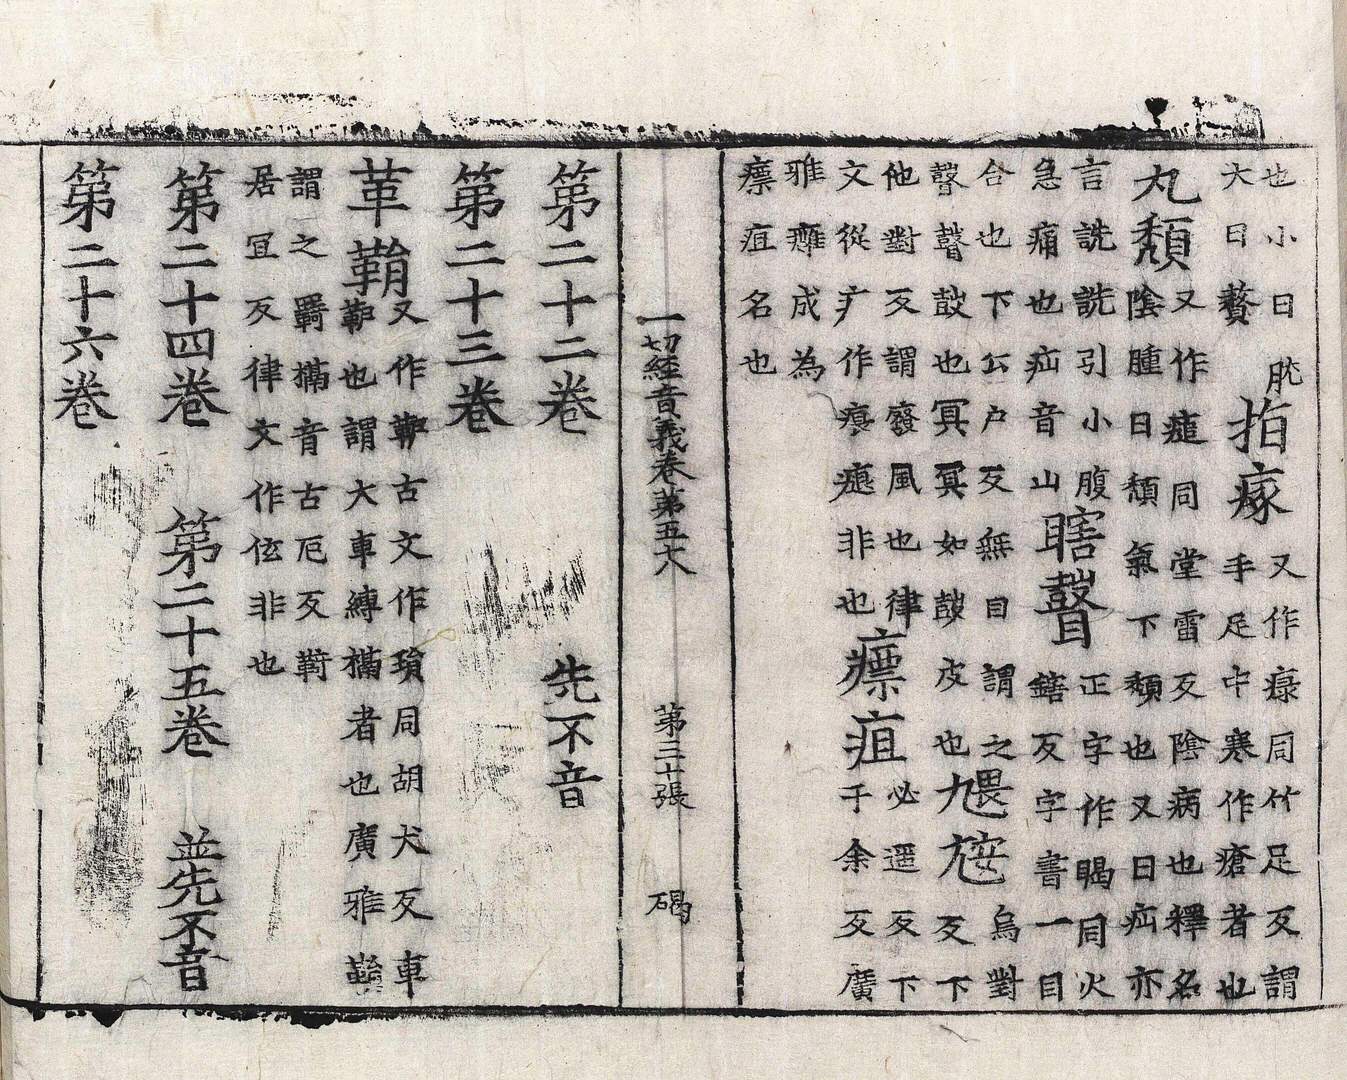 也小曰
大曰贅
胱拍瘃
又作瘃同竹足反謂
手足中寒作瘡者也
丸頹
又作㿉同堂雷反陰病也釋名
陰腫曰頹氣下頹也又曰疝亦
言詵詵引小腹
急痛也疝音山
瞎瞽
正字作同火
鎋反字書一目
合也下公户反無目謂之
瞽瞽鼓也冥冥如鼓皮也
烏對
反下
他對反謂癈風也律
文從疒作非也
瘭疽
必遥反下
千余反廣
雅癰成為
瘭疽名也
一切經音義卷第五六 第三十張 碣
第二十二卷 先不音
第二十三卷
革鞙
又作古文作琄同胡犬反車
也謂大車縛槅者也廣雅
謂之羇槅音古厄反羇
居冝反律文作伭非也
第二十四卷 第二十五卷 並先不音
第二十六卷